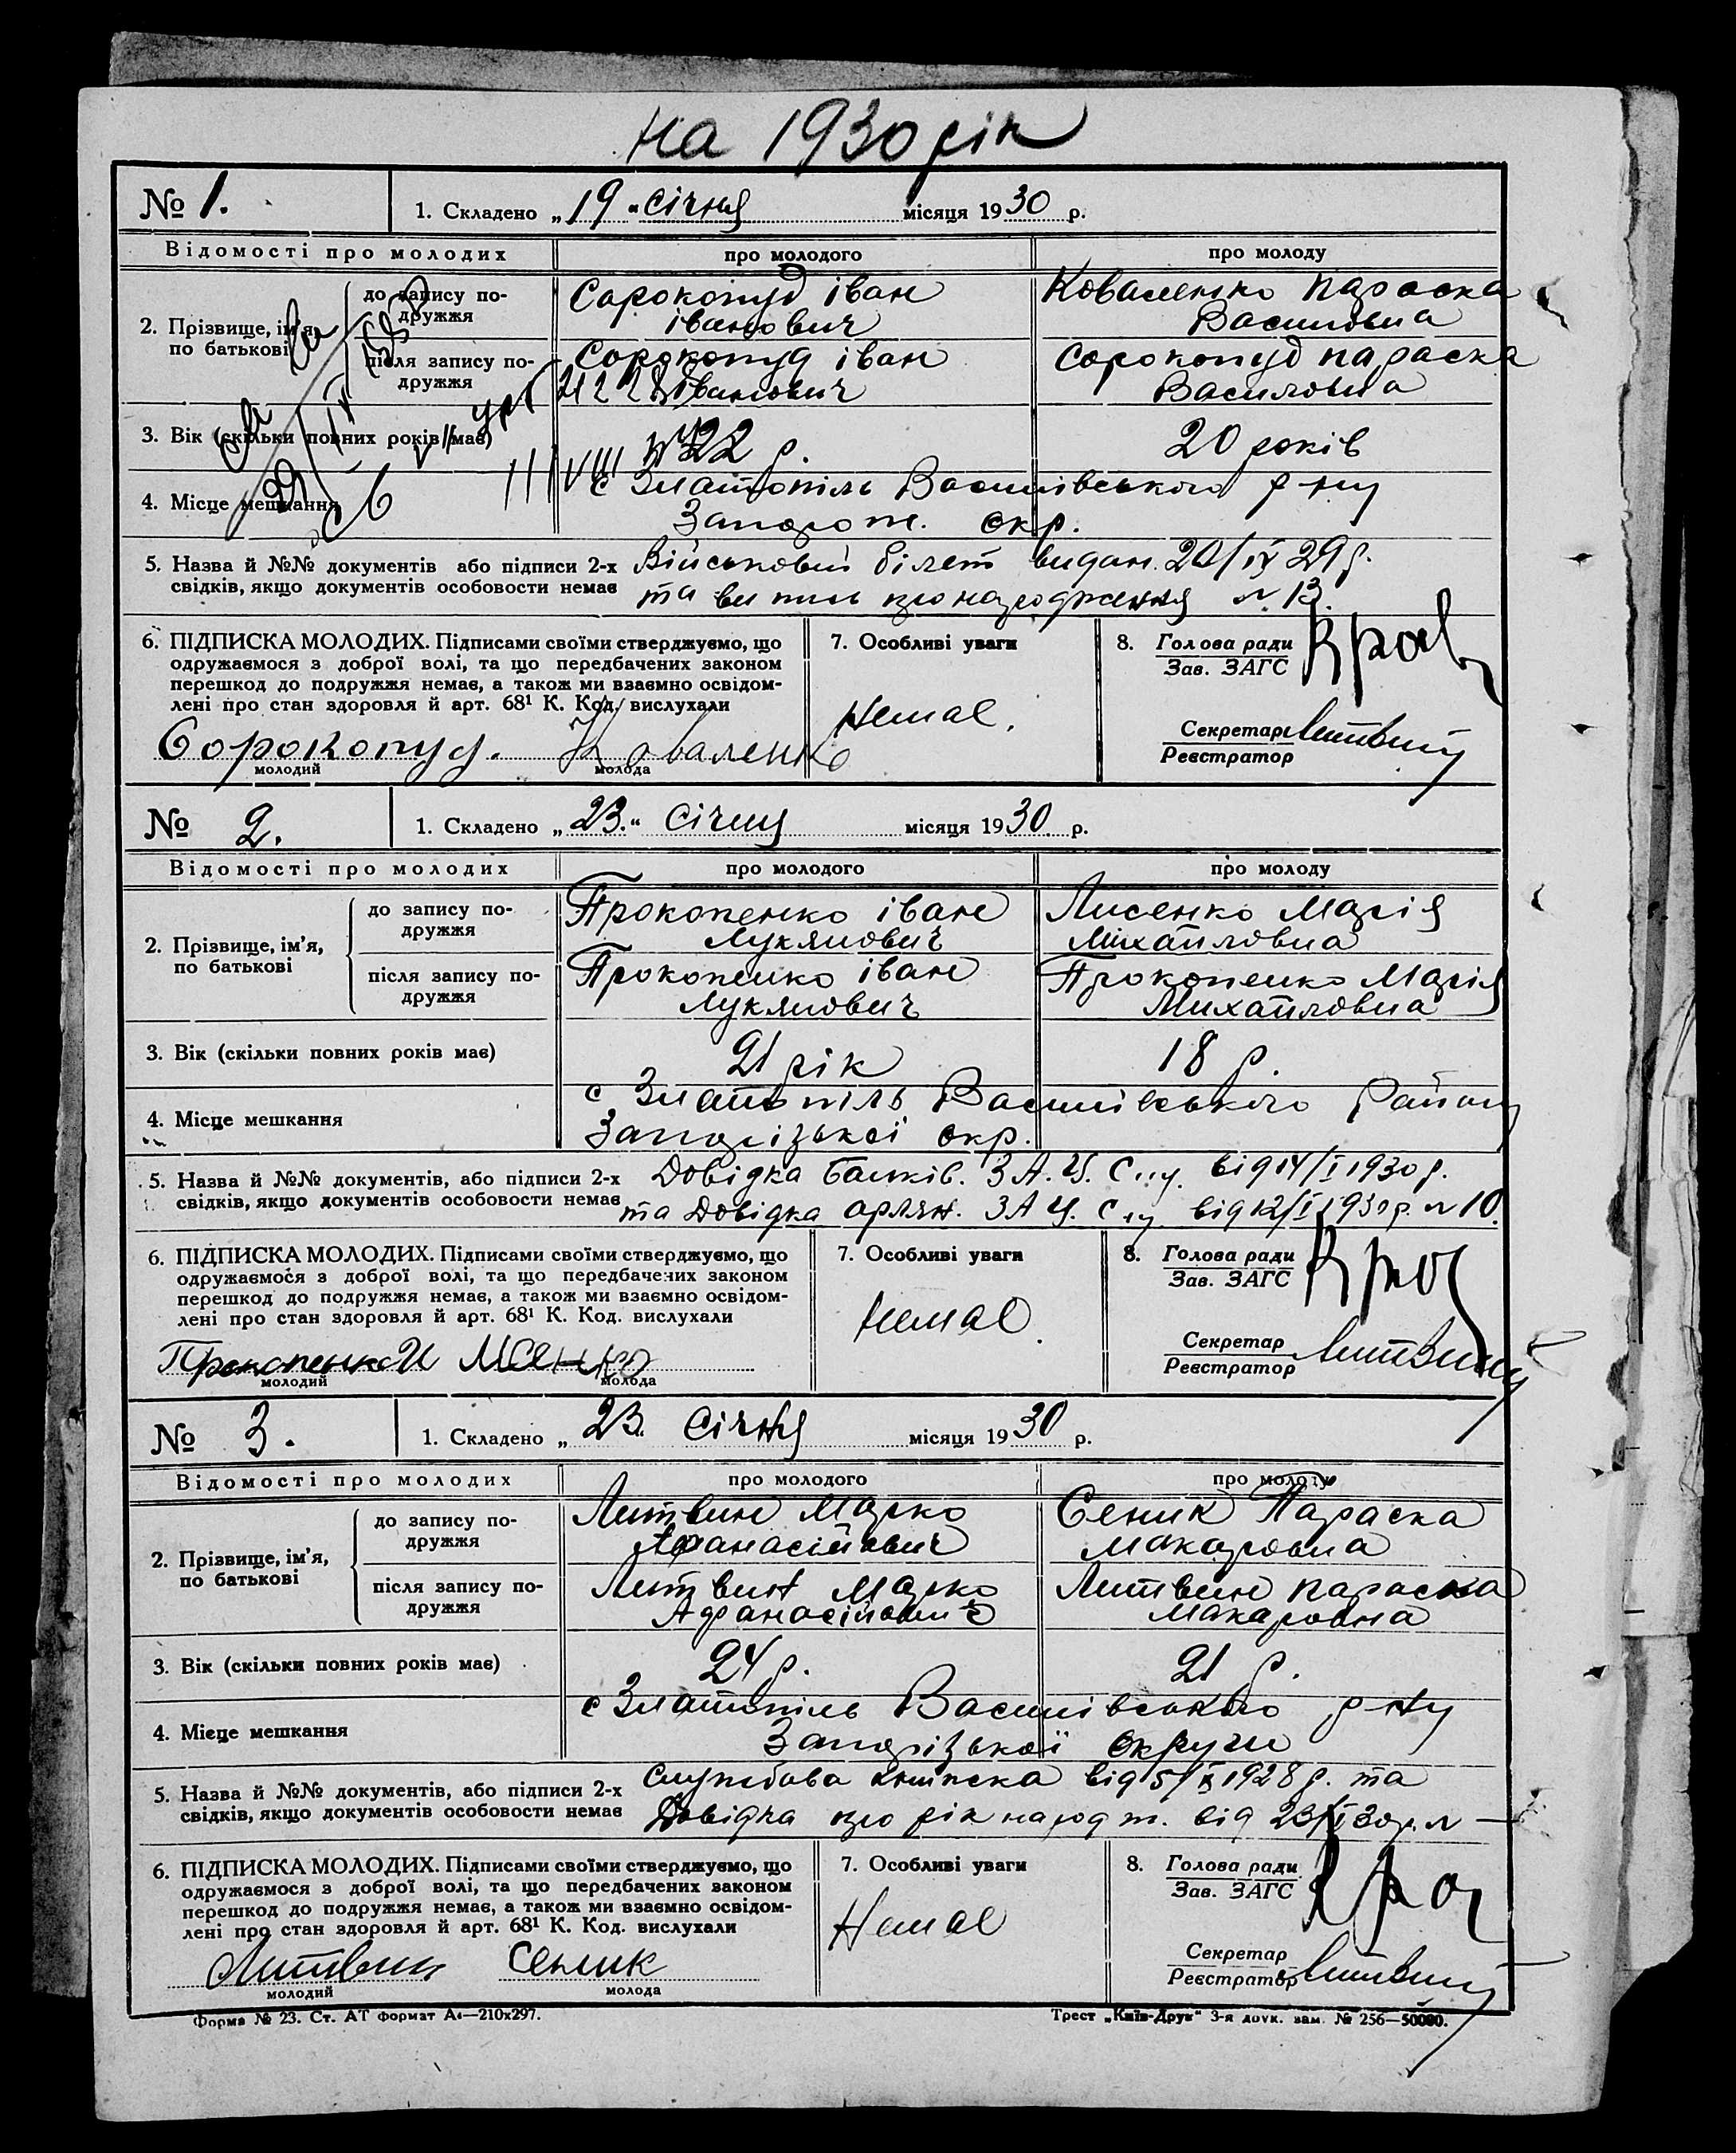 на 1930 рік
№ 1. 1. Складено „19" січня місяця 1930 р.
Відомості про молодих про молодого про молоду
2. Прізвище, ім'я, по батькові
до запису по-дружжя Сорокопуд іван Коваленко Параска
іванович Василовна
після запису по-дружжя Сорокопуд іван Сорокопуд параска
Іванович Василовна
3. Вік (скільки повних років має) 22 р. 20 років
4. Місце мешкання с Златопіль Василівського р-ну
Запорож. окр.
5. Назва й №№ документів або підписи 2-х Військовий білет видан. 20/IX 29 р.
свідків, якщо документів особовости немає та випись про народження № 13.
6. ПІДПИСКА МОЛОДИХ. Підписами своїми стверджуємо, що 7. Особливі уваги 8. Голова ради
одружаємося з доброї волі, та що передбачених законом Зав. ЗАГС
перешкод до подружжя немає, а також ми взаємно освідом-
лені про стан здоровля й арт. 68¹ К. Код. вислухали Немає.
Секретар Литвин
Сорокопуд. Коваленко Реєстратор
молодий молода
№ 2. 1. Складено „23." Січня місяця 1930 р.
Відомості про молодих про молодого про молоду
2. Прізвище, ім'я, по батькові
до запису по-дружжя Прокопенко іван Лисенко Марія
Лукянович Михайловна
після запису по-дружжя Прокопенко іван Прокопенко Марія
Лукянович Михайловна
3. Вік (скільки повних років має) 21 рік 18 р.
4. Місце мешкання с Златопіль Василівського Району
Запорізької окр.
5. Назва й №№ документів, або підписи 2-х Довідка Балків. З.А.Г.С.у. від 14/I 1930 р.
свідків, якщо документів особовости немає та Довідка орлян. ЗАГС у від 12/I 1930 р. № 10.
6. ПІДПИСКА МОЛОДИХ. Підписами своїми стверджуємо, що 7. Особливі уваги 8. Голова ради
одружаємося з доброї волі, та що передбачених законом Зав. ЗАГС
перешкод до подружжя немає, а також ми взаємно освідом-
лені про стан здоровля й арт. 68¹ К. Код. вислухали Немає.
Секретар Литвин
Прокопенко И Реєстратор
молодий молода
№ 3. 1. Складено „23. Січня місяця 1930 р.
Відомості про молодих про молодого про молоду
2. Прізвище, ім'я, по батькові
до запису по-дружжя Литвин Марко Сеник Параска
Афанасійович Макаровна
після запису по-дружжя Литвин Марко Литвин параска
Афанасійович Макаровна
3. Вік (скільки повних років має) 24 р. 21 р.
4. Місце мешкання с Златопіль Василівського р-ну
Запорізької округи
5. Назва й №№ документів, або підписи 2-х Службова книжка від 5/IX 1928 р. та
свідків, якщо документів особовости немає Довідка про рік народж. від 23/I 30 р. № —
6. ПІДПИСКА МОЛОДИХ. Підписами своїми стверджуємо, що 7. Особливі уваги 8. Голова ради
одружаємося з доброї волі, та що передбачених законом Зав. ЗАГС
перешкод до подружжя немає, а також ми взаємно освідом-
лені про стан здоровля й арт. 68¹ К. Код. вислухали Немає
Секретар Литвин
Литвин Сеник Реєстратор
молодий молода
Форма № 23. Ст. АТ формат А4—210х297. Трест „Київ-Друк" 3-я друк. зам. № 256—50000.